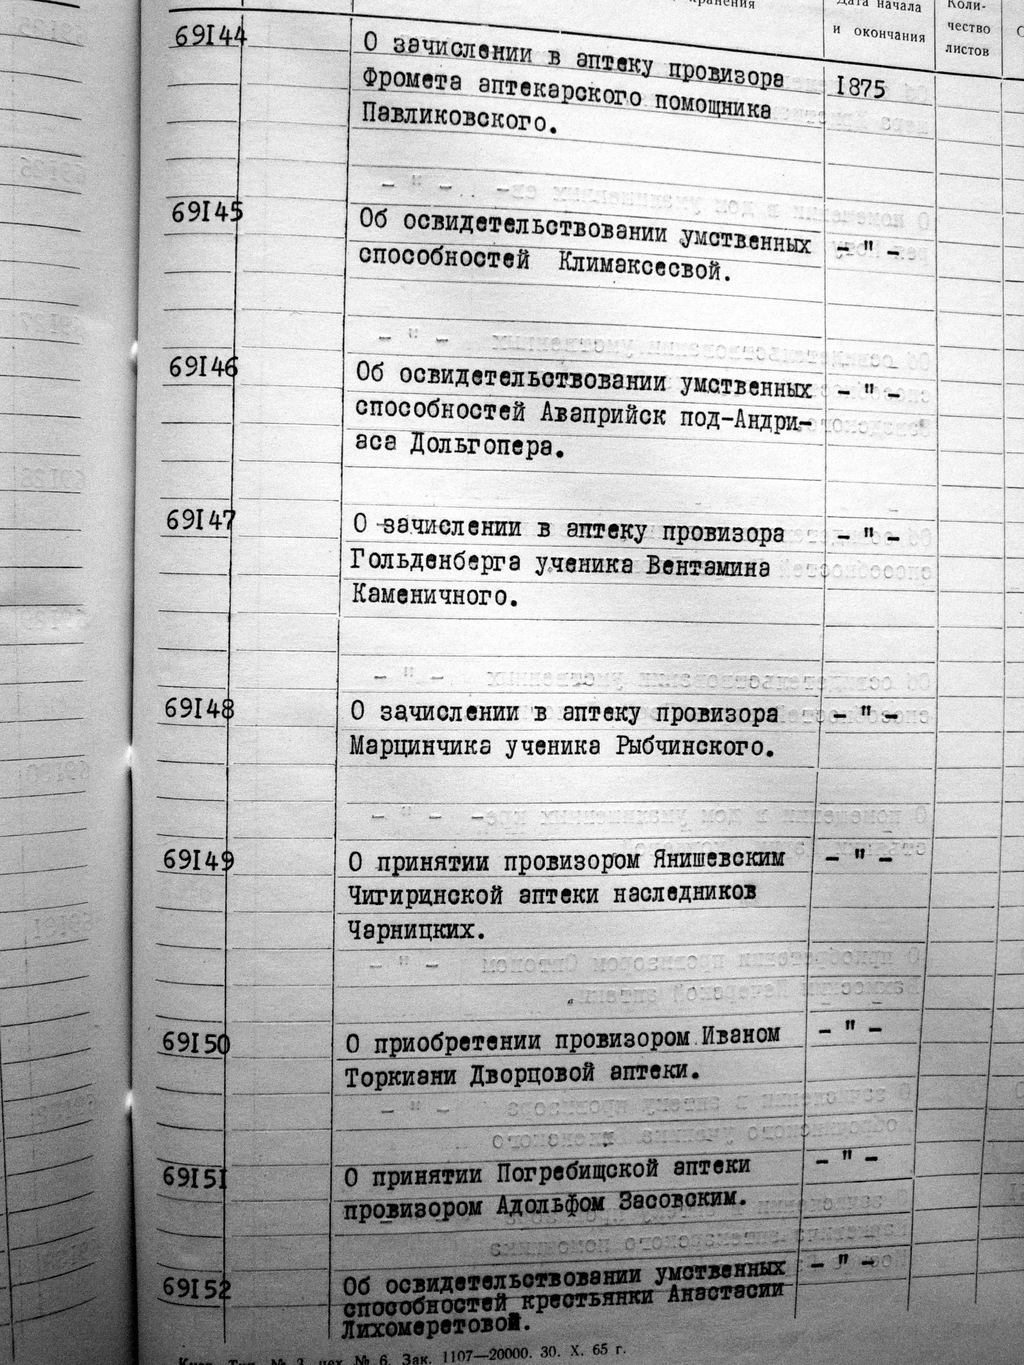 хранения
Дата начала
и окончания
Коли-
чество
листов
69I44
О зачислении в аптеку провизора
Фромета аптекарского помощника
Павликовского.
I875
69I45
Об освидетельствовании умственных
способностей Климаксесвой.
- " -
69I46
Об освидетельствовании умственных
способностей Аваприйск под-Андри-
аса Дольгопера.
- " -
69I47
О зачислении в аптеку провизора
Гольденберга ученика Вентамина
Каменичного.
- " -
69I48
О зачислении в аптеку провизора
Марцинчика ученика Рыбчинского.
- " -
69I49
О принятии провизором Янишевским
Чигиринской аптеки наследников
Чарницких.
- " -
69I50
О приобретении провизором Иваном
Торкиани Дворцовой аптеки.
- " -
69I51
О принятии Погребищской аптеки
провизором Адольфом Засовским.
- " -
69I52
Об освидетельствовании умственных
способностей крестьянки Анастасии
Лихомеретовой.
- " -
Тип. № 3, цех № 6. Зак. 1107—20000. 30. X. 65 г.